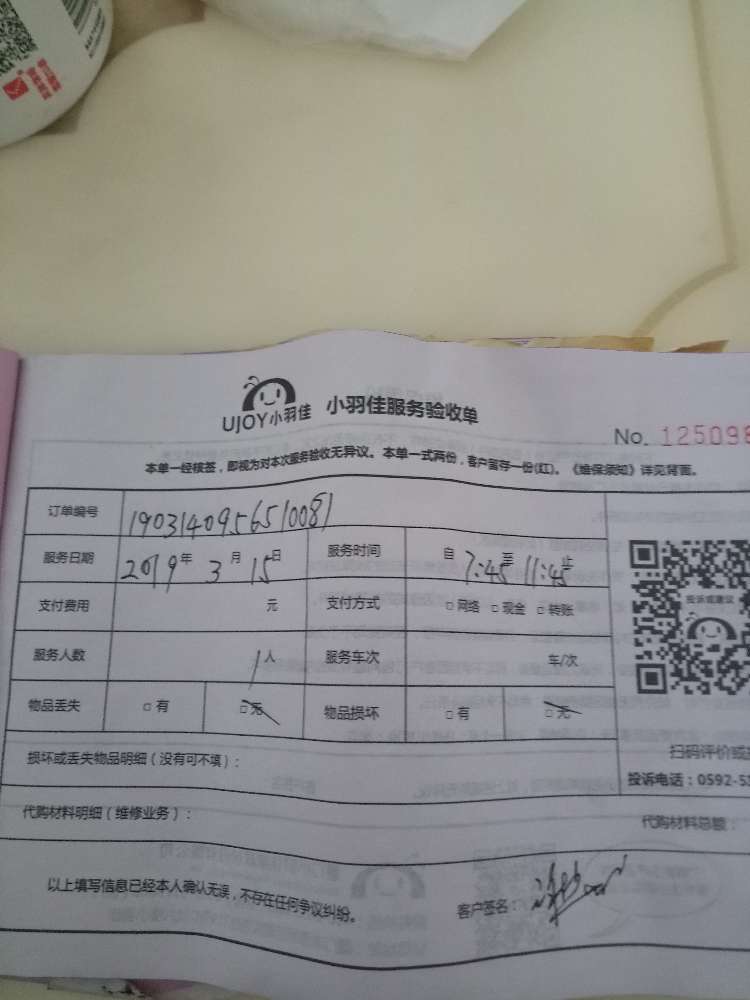 UJOY小羽佳 小羽佳服务验收单
No. 125098
本单一经核签，即视为对本次服务验收无异议。本单一式两份，客户留存一份(红)。《维保须知》详见背面。
订单编号 1903140956510081
服务日期 2019年 3月 15日 服务时间 自 7:45 至 11:45 止
支付费用 元 支付方式 □ 网络 □ 现金 □ 转账
投诉或建议
服务人数 1人 服务车次 车/次
物品丢失 □ 有 □ 无 物品损坏 □ 有 □ 无
损坏或丢失物品明细（没有可不填）：
扫码评价或
投诉电话：0592-5
代购材料明细（维修业务）：
代购材料总额：
以上填写信息已经本人确认无误，不存在任何争议纠纷。
客户签名：